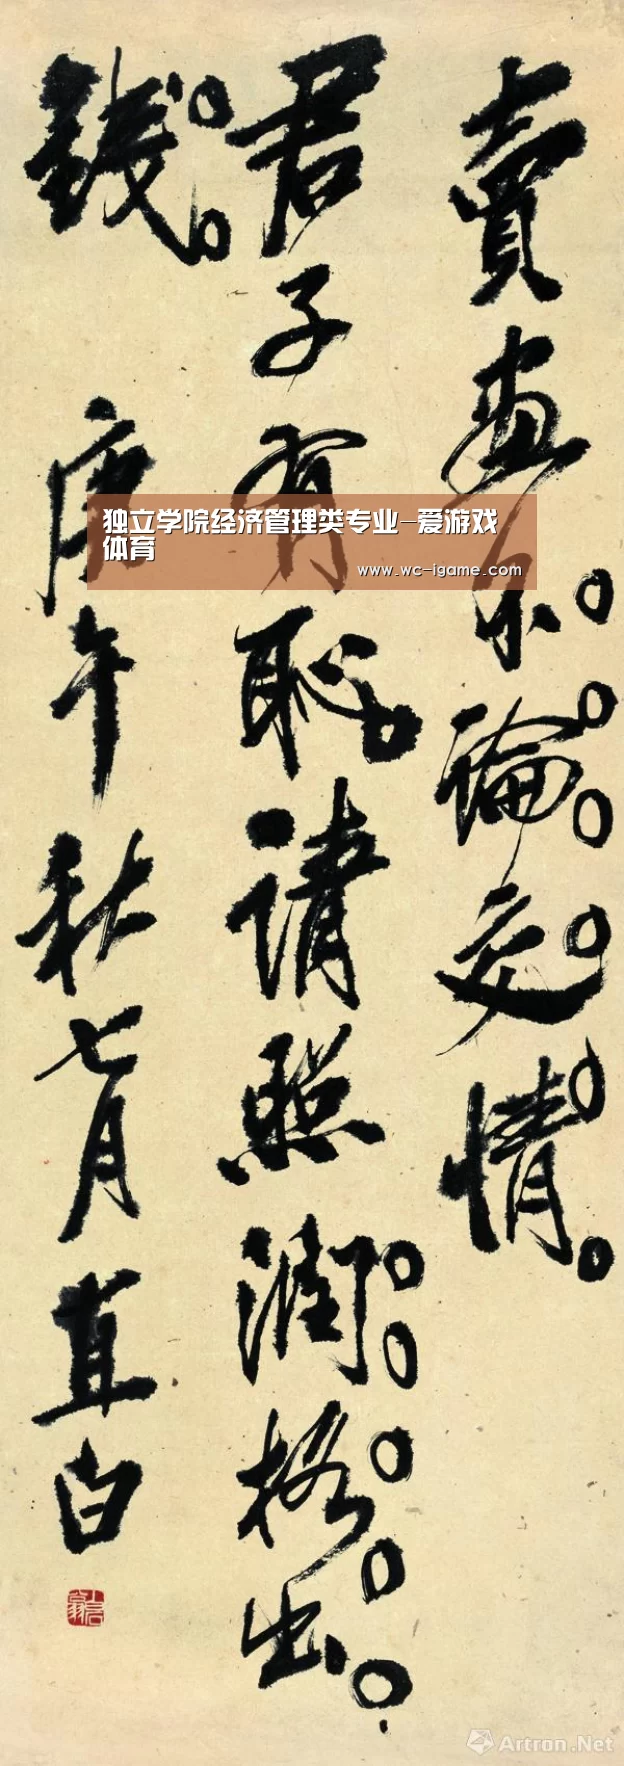 賣畫不論交情。
君子有恥，請照潤格出
錢。庚午秋七月直白
独立学院经济管理类专业-爱游戏
体育
www.wc-igame.com
Artron.Net